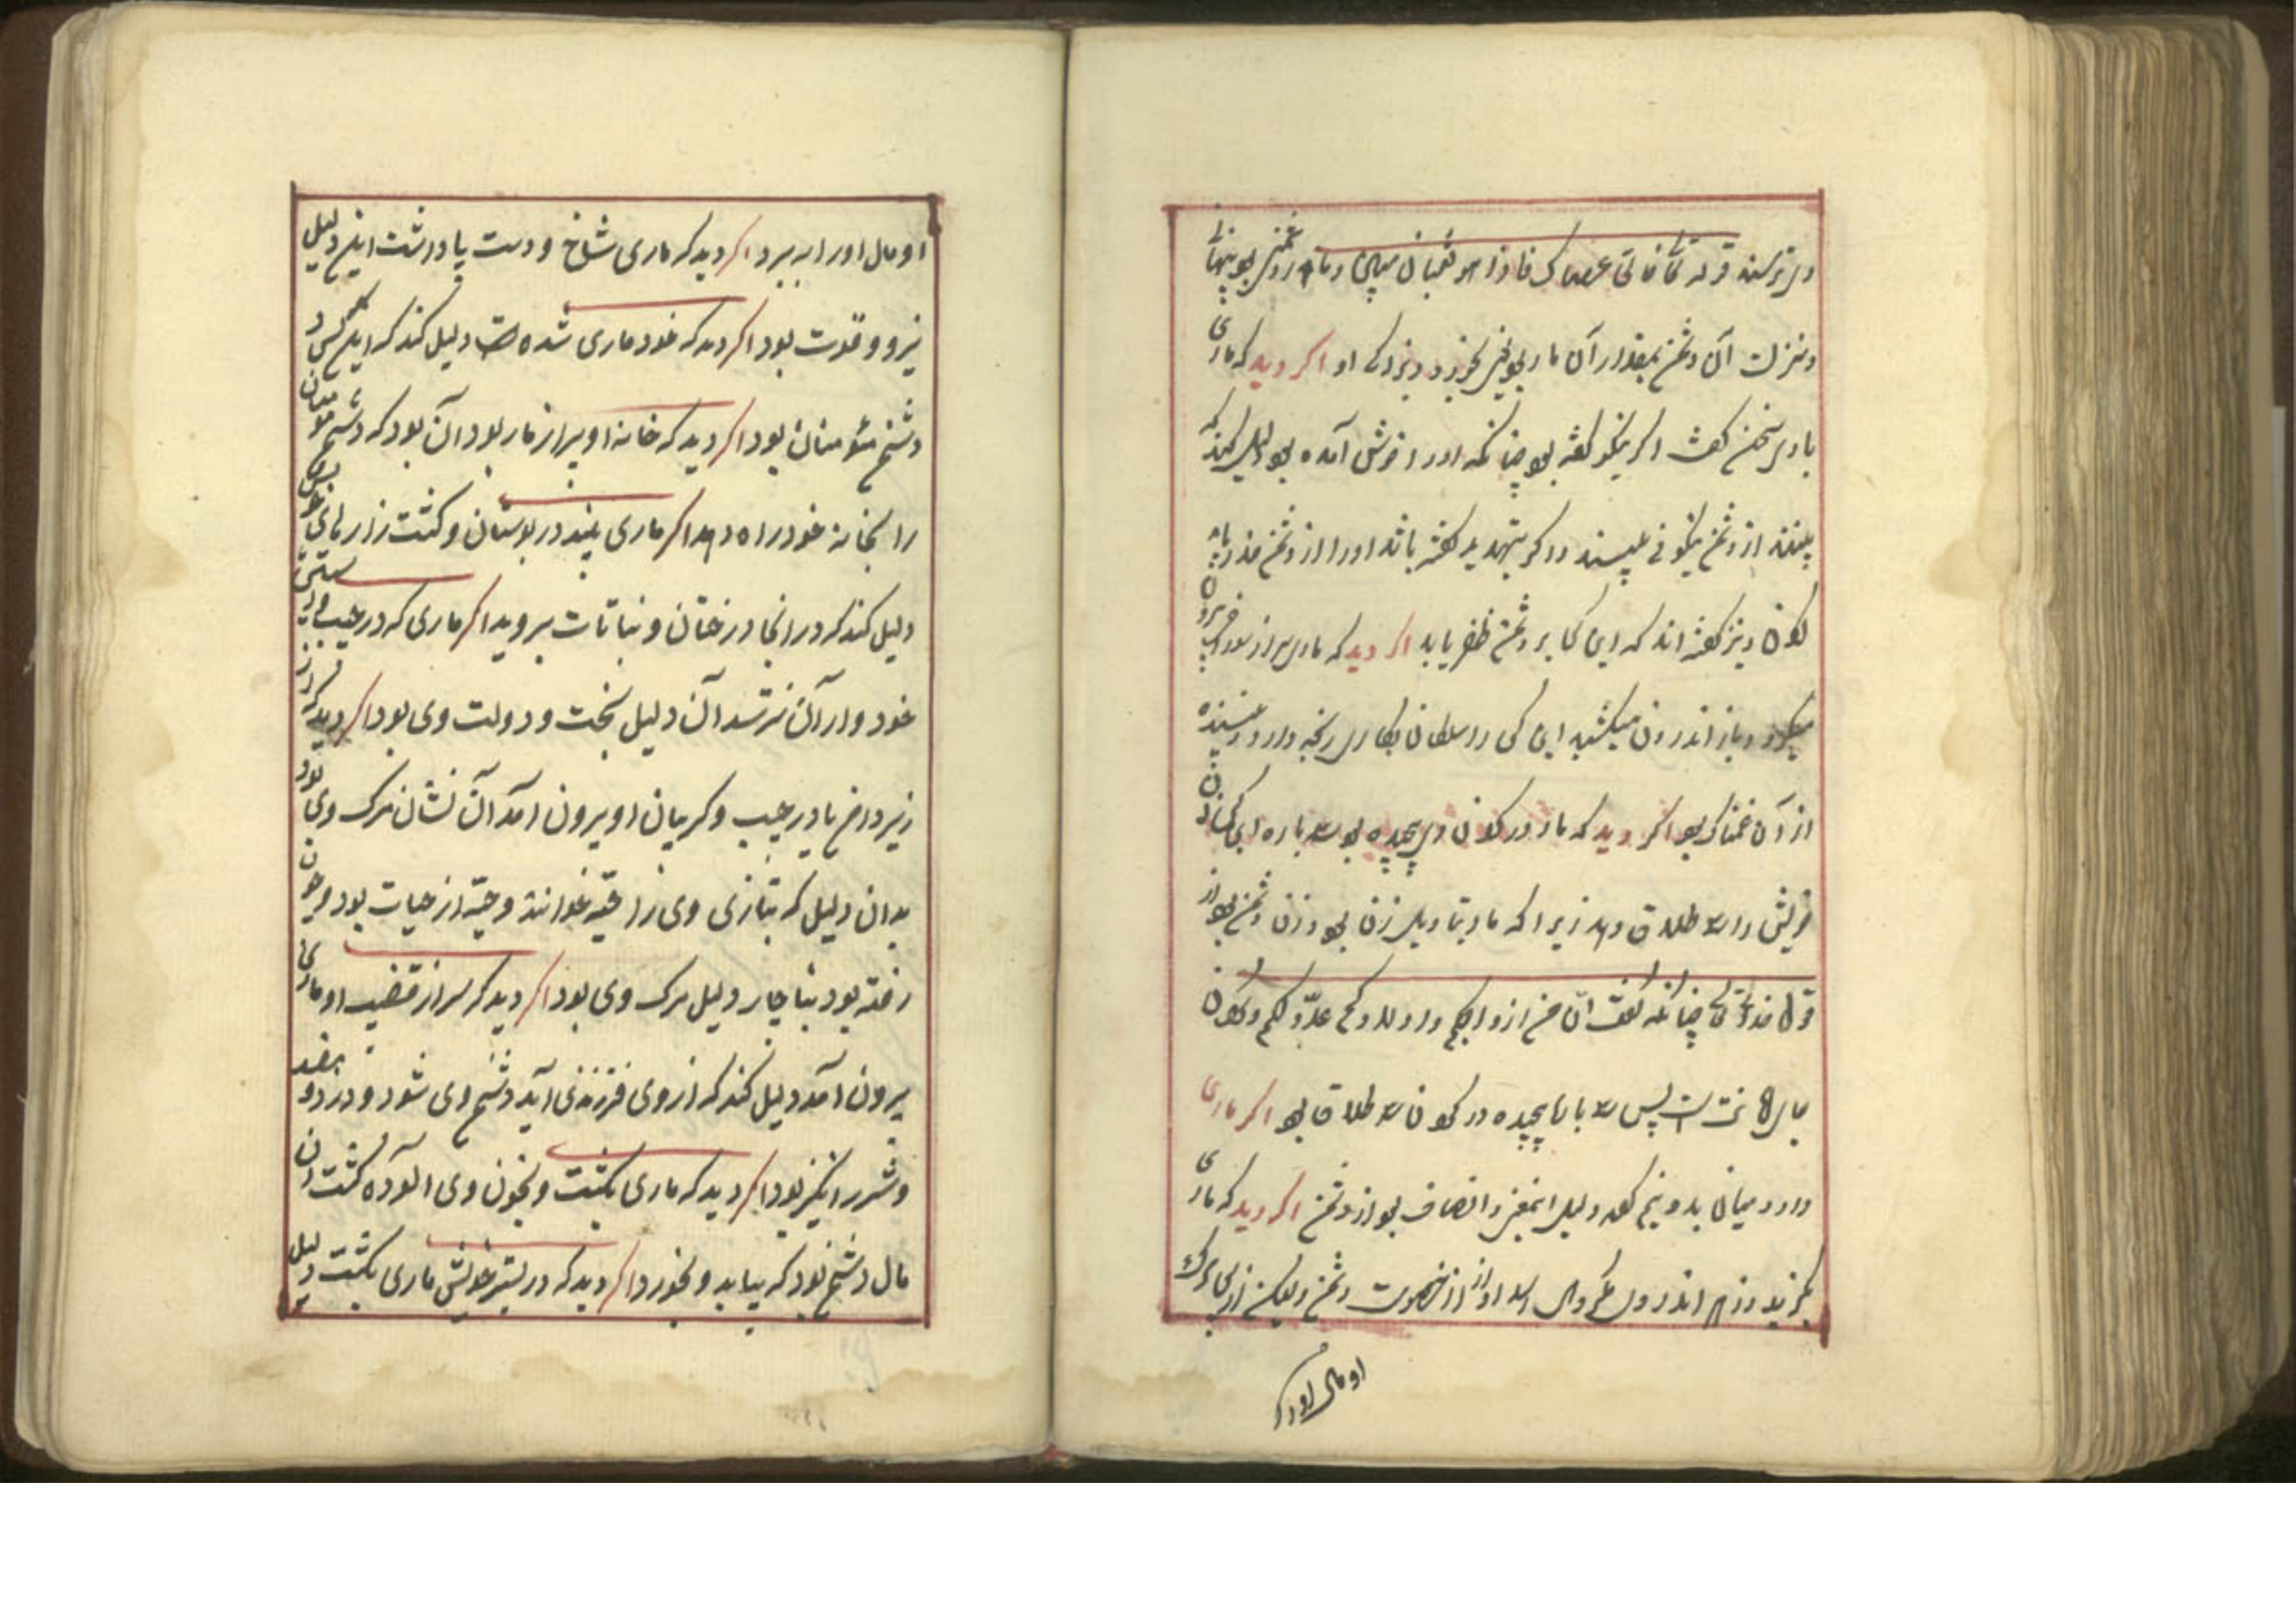 وی ترسند قوله تعالی فالقی عصاک فاذا هو ثعبان مبین و مار دشمنی بود پنهانی
و منزلت آن دشمن بمقدار آن مار بود اکر دید که ماری
با وی سخن کفت اکر نیکو کفته بود چنانکه او را خوش آمده بود دلیل کند که
از دشمن نیکوئی بیند و اکر بتهدید کفته باشد او را از دشمن حذر باید
کردن و نیز کفته‌اند که این کس بر دشمن ظفر یابد اکر دید که مار سر از سوراخ بیرون
میکرد و باز اندرون میکشید این کس را سلطان بکاری رنجه دارد و بیننده
از آن غمناک بود اکر دید که مار در کردن وی پیچیده بود سه باره این کس زن
خویش را سه طلاق دهد زیرا که مار بتاویل زن بود و زن دشمن بود از
قول خدای تعالی چنانکه کفت ان من ازواجکم و اولادکم عدوّ لکم و کردن
جای امانت است پس سه بار مار پیچیده در کردن سه طلاق بود اکر ماری
را از میان بدو نیم کرد دلیل انصاف بود از دشمن اکر دید که ماری
بکزید و زهر اندر وی از خصومت دشمن ولیکن از پی مرک
او مال او را
او مال او را ببرد اکر دید که ماری شاخ و دست پا داشت این دلیل
نیرو و قوت بود اکر دید که خود ماری شده است دلیل کند که این کس
دشمن مؤمنان بود اکر دید که خانه او پر از مار بود آن بود که دشمن مؤمنان
را بخانه خود راه دهد اکر ماری بیند در بوستان و کشت زارهای خویش
دلیل کند که در انجا درختان و نباتات بروید اکر ماری که در جیب و آستین
خود دارد از آن نترسد آن دلیل بخت و دولت وی بود اکر دید که از
زیر دامن یا در جیب و کریبان او بیرون امد آن نشان مرک وی بود
بدان دلیل که بتازی وی را حیّه خوانند و حیّه از حیات بود و چون
رفته بود بناچار دلیل مرک وی بود اکر دید که سر از قضیب او ماری
بیرون آمد دلیل کند که از وی فرزندی آید دشمن وی شود و
و شررانکیز بود اکر دید که ماری بکشت و بخون وی الوده کشت آن
مال دشمن بود که بیابد و بخورد اکر دید که در بستر خویش ماری بکشت دلیل